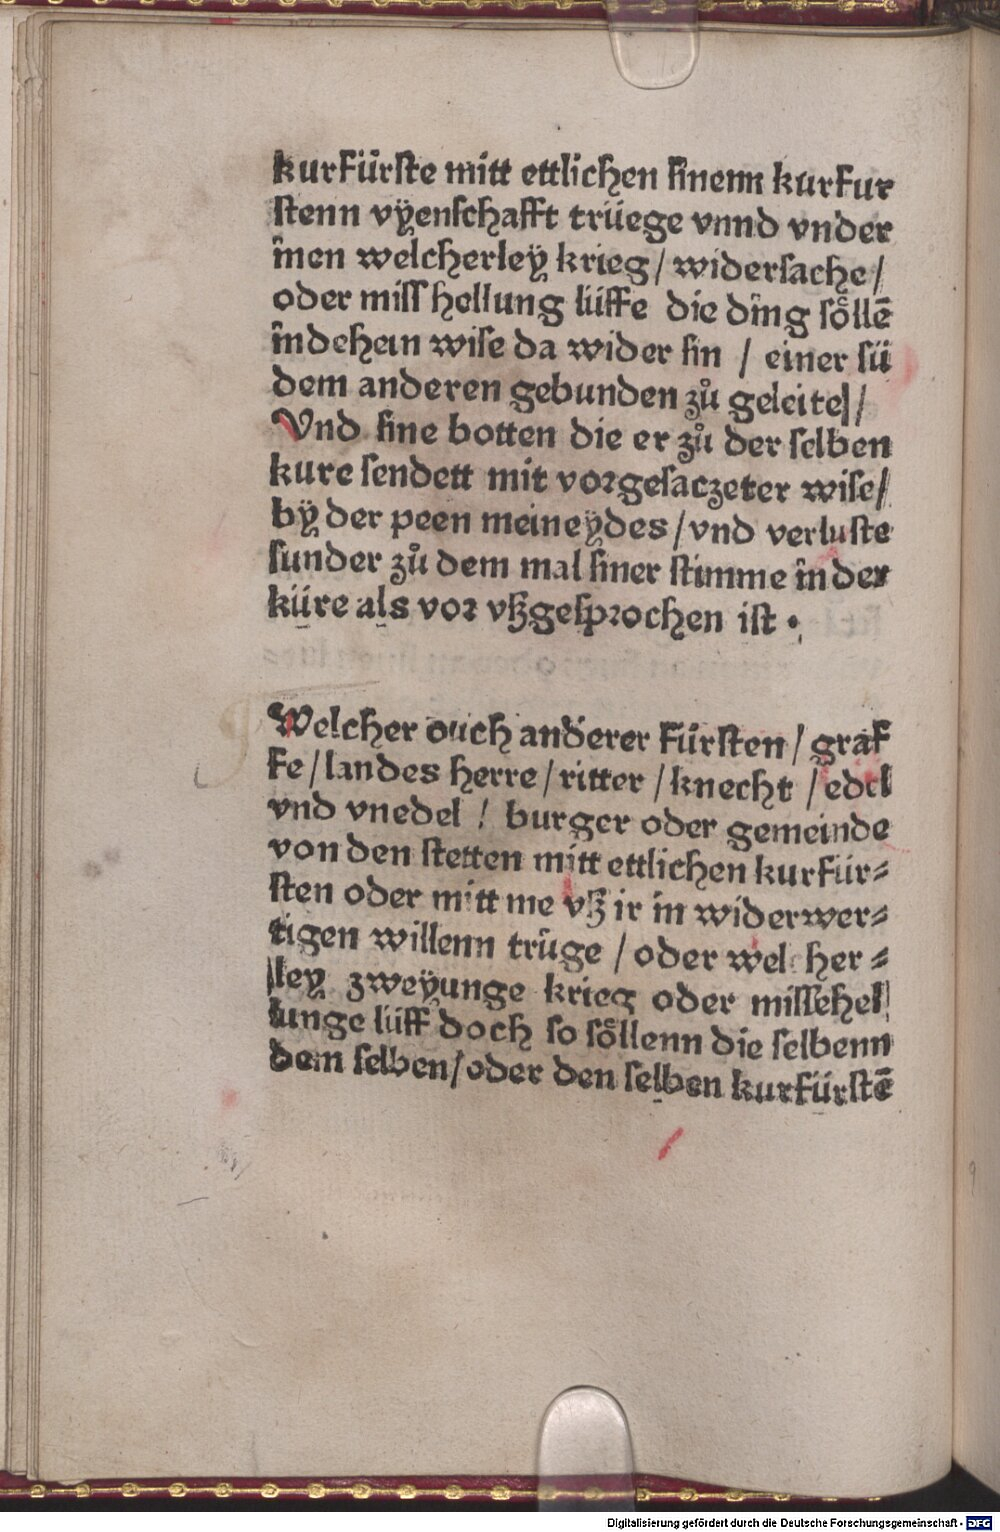 kurfürste mitt ettlichen sinenn kurfur
stenn vÿenschafft trüege vnnd vnder
înen welcherleÿ krieg / widersache /
oder miss hellung lüffe die dîng soͤllē
îndehein wise da wider sin / einer sü
dem anderen gebunden zuͦ geleite /
Vnd sine botten die er zuͦ der selben
kure sendett mit vorgesaczeter wise /
bÿ der peen meineÿdes / vnd verluste
sunder zuͦ dem mal siner stimme în der
küre als vor vßgesprochen ist .
Welcher ouch anderer fürsten / graf
fe / landes herre / ritter / knecht / edel
vnd vnedel / burger oder gemeinde
von den stetten mitt ettlichen kurfür=
sten oder mitt me vß ir în widerwer=
tigen willenn trüge / oder welcher=
leÿ zweÿunge krieg oder missehel
lunge lüff doch so soͤllenn die selbenn
dem selben / oder den selben kurfürstē
Digitalisierung gefördert durch die Deutsche Forschungsgemeinschaft - DFG